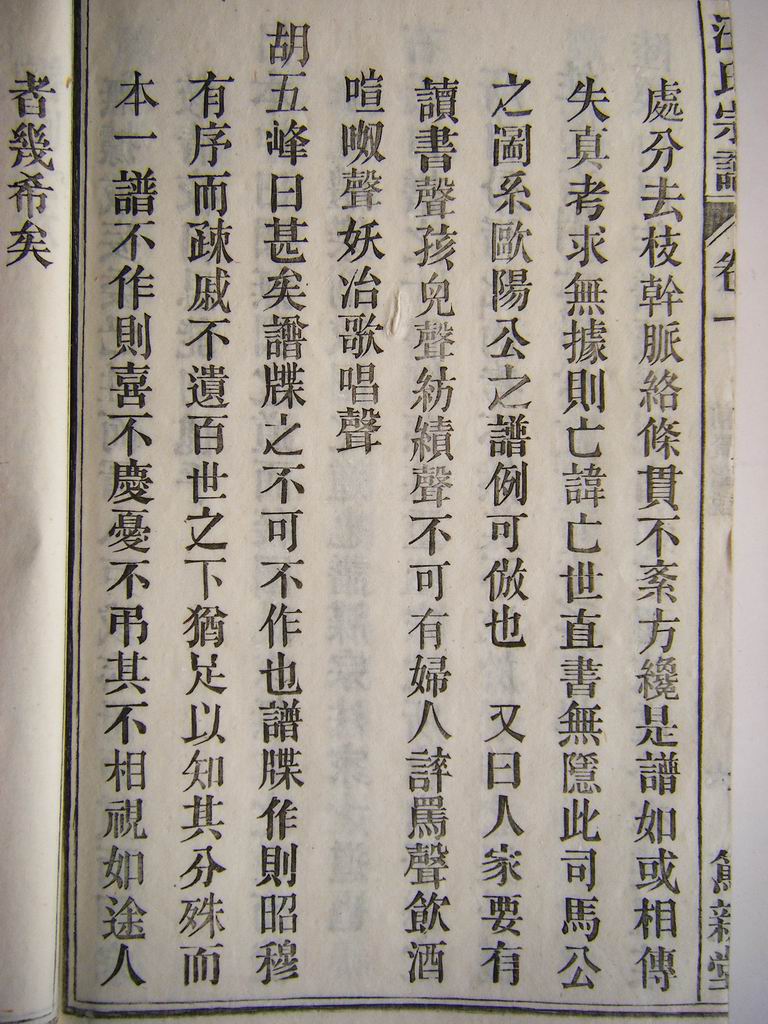 汪氏宗譜 卷一
處分去枝幹脈絡條貫不紊方纔是譜如或相傳
失真考求無據則亡諱亡世直書無隱此司馬公
之圖系歐陽公之譜例可倣也 又曰人家要有
讀書聲孩兒聲紡績聲不可有婦人誶罵聲飲酒
喧呶聲妖冶歌唱聲
胡五峰曰甚矣譜牒之不可不作也譜牒作則昭穆
有序而疎戚不遺百世之下猶足以知其分殊而
本一譜不作則喜不慶憂不弔其不相視如途人
者幾希矣